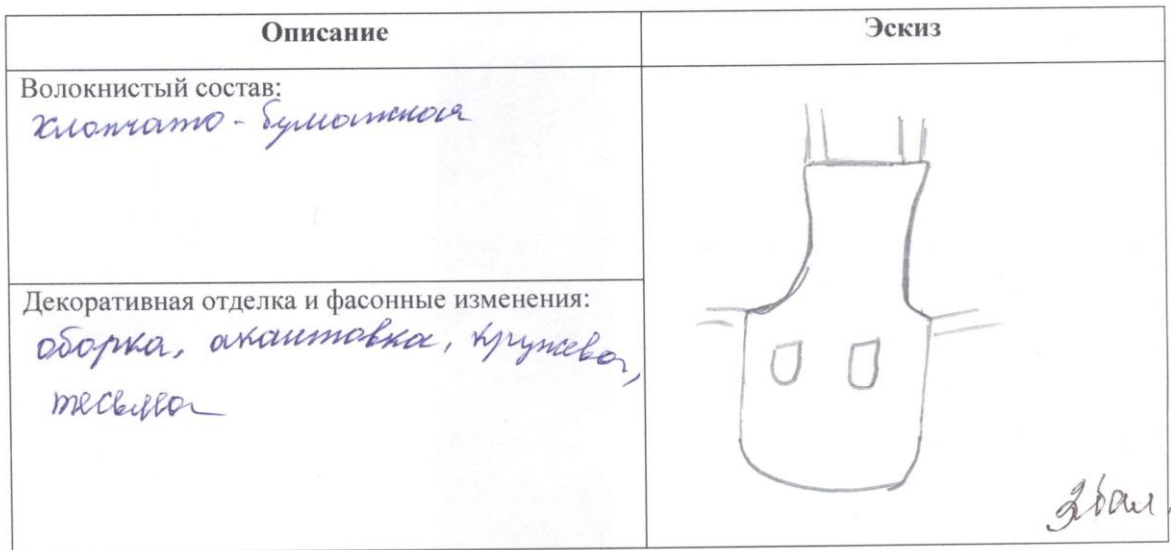 Описание
Эскиз
Волокнистый состав:
хлопчато-бумажная
Декоративная отделка и фасонные изменения:
оборка, акантовка, кружева,
тесьма
3 бал.